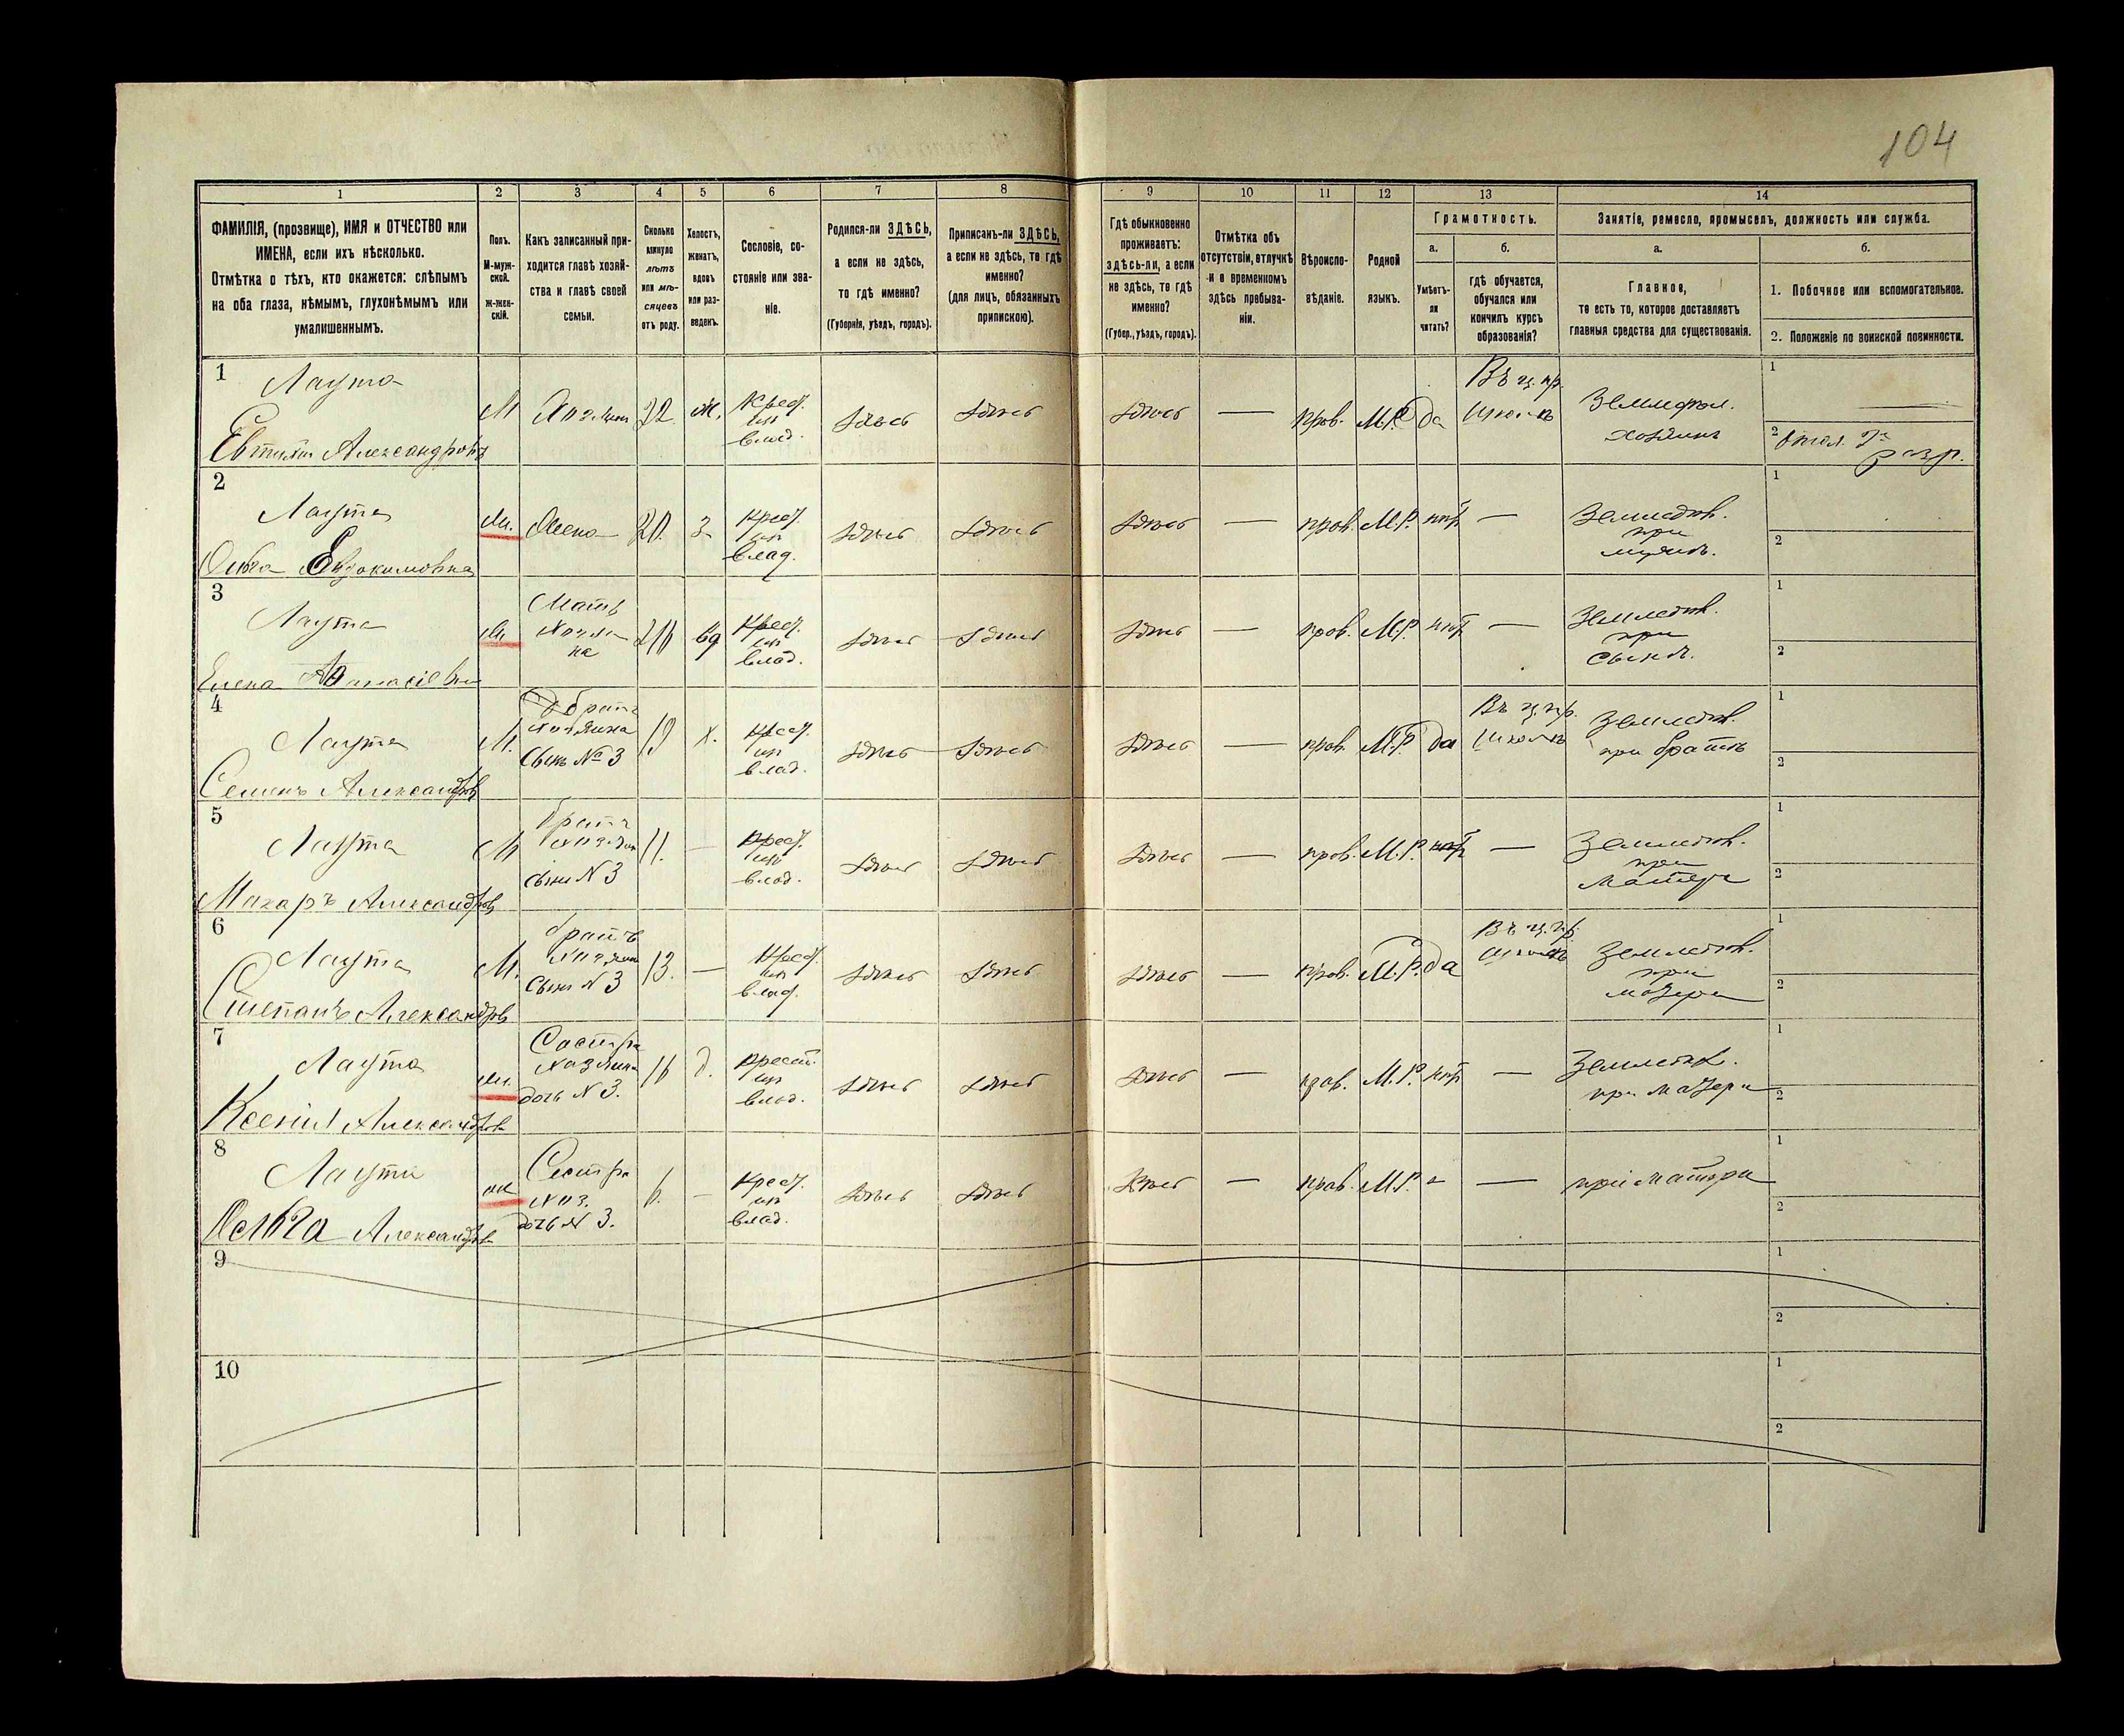 104
1 2 3 4 5 6 7 8 9 10 11 12 13 14
ФАМИЛІЯ, (прозвище), ИМЯ и ОТЧЕСТВО или
ИМЕНА, если ихъ нѣсколько.
Отмѣтка о тѣхъ, кто окажется: слѣпымъ
на оба глаза, нѣмымъ, глухонѣмымъ или
умалишеннымъ.
Полъ.
М-муж-
ской.
ж-жен-
скій.
Какъ записанный при-
ходится главѣ хозяй-
ства и главѣ своей
семьи.
Сколько
минуло
лѣтъ
или мѣ-
сяцевъ
отъ роду.
Холостъ,
женатъ,
вдовъ
или раз-
веденъ.
Сословіе, со-
стояніе или зва-
ніе.
Родился-ли ЗДѢСЬ,
а если не здѣсь,
то гдѣ именно?
(Губернія, уѣздъ, городъ).
Приписанъ-ли ЗДѢСЬ,
а если не здѣсь, то гдѣ
именно?
(для лицъ, обязанныхъ
припискою).
Гдѣ обыкновенно
проживаетъ:
ЗДѢСЬ-ЛИ, а если
не здѣсь, то гдѣ
именно?
(Губер., уѣздъ, городъ).
Отмѣтка объ
отсутствіи, отлучкѣ
и о временномъ
здѣсь пребыва-
ніи.
Вѣроиспо-
вѣданіе.
Родной
языкъ.
Грамотность.
а.
Умѣетъ-
ли
читать?
б.
гдѣ обучается,
обучался или
кончилъ курсъ
образованія?
Занятіе, ремесло, промыселъ, должность или служба.
а.
Главное,
то есть то, которое доставляетъ
главныя средства для существованія.
б.
1. Побочное или вспомогательное.
2. Положеніе по воинской повинности.
1
Лаута
Александровъ
М
Хозяинъ
22.
ж.
Крест.
изъ
влад.
здѣсь
здѣсь
здѣсь
—
прав.
М.Р.
да
Въ ц. пр.
школѣ
хозяинъ
1
2
разр.
2
Лаута
Евдокимовна
ж.
Жена
20.
з.
Крест.
изъ
влад.
здѣсь
здѣсь
здѣсь
—
прав.
М.Р.
нѣтъ
—
Земледѣл.
при
мужѣ.
1
2
3
Лаута
Елена
ж.
Мать
хозяи-
на
вд
Крест.
изъ
влад.
здѣсь
здѣсь
здѣсь
—
прав.
М.Р.
нѣтъ
—
Земледѣл.
при
сынѣ.
1
2
4
Лаута
Семенъ Александровъ
М.
братъ
хозяина
сынъ № 3
х.
Крест.
изъ
влад.
здѣсь
здѣсь
здѣсь
—
прав.
М.Р.
да
Въ ц. пр.
школѣ
Земледѣл.
при братѣ
1
2
5
Лаута
Макаръ Александровъ
М
братъ
хозяин
сынъ N 3
11.
—
Крест.
изъ
влад.
здѣсь
здѣсь
здѣсь
—
прав.
М.Р.
нѣтъ
—
Земледѣл.
при
матери
1
2
6
Лаута
Степанъ Александровъ
М.
братъ
хозяин
сынъ N 3
13.
—
Крест.
изъ
влад.
здѣсь
здѣсь
здѣсь
—
прав.
М.Р.
да
Въ ц. пр.
школѣ
Земледѣл.
при
матери
1
2
7
Лаута
Ксенія Александрова
ж.
Сестра
хозяина
дочь N 3.
16
д.
Крест.
изъ
влад.
здѣсь
здѣсь
здѣсь
—
прав.
М.Р.
нѣтъ
—
Земледѣл.
при матери
1
2
8
Лаута
Александрова
ж
Сестра
хоз.
дочь N 3.
6.
—
Крест.
изъ
влад.
здѣсь
здѣсь
здѣсь
—
прав.
М.Р.
—
—
при матери
1
2
9
1
2
10
1
2